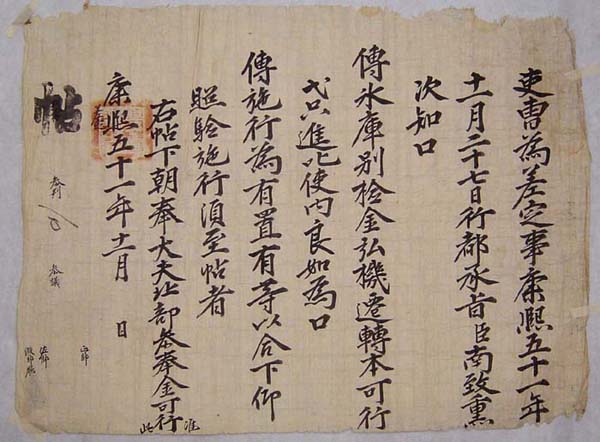 吏曹為差定事康熙五十一年
十一月二十七日行都承旨臣南致熏
次知口
傳氷庫別檢金弘機遷轉本可行
弋只進叱使內良如為口
傳施行為有置有等以合下仰
照驗施行須至帖者
右帖下朝奉大夫北部參奉金可行 准此
康熙五十一年十一月 日
帖
參判 參議
正郎
佐郎